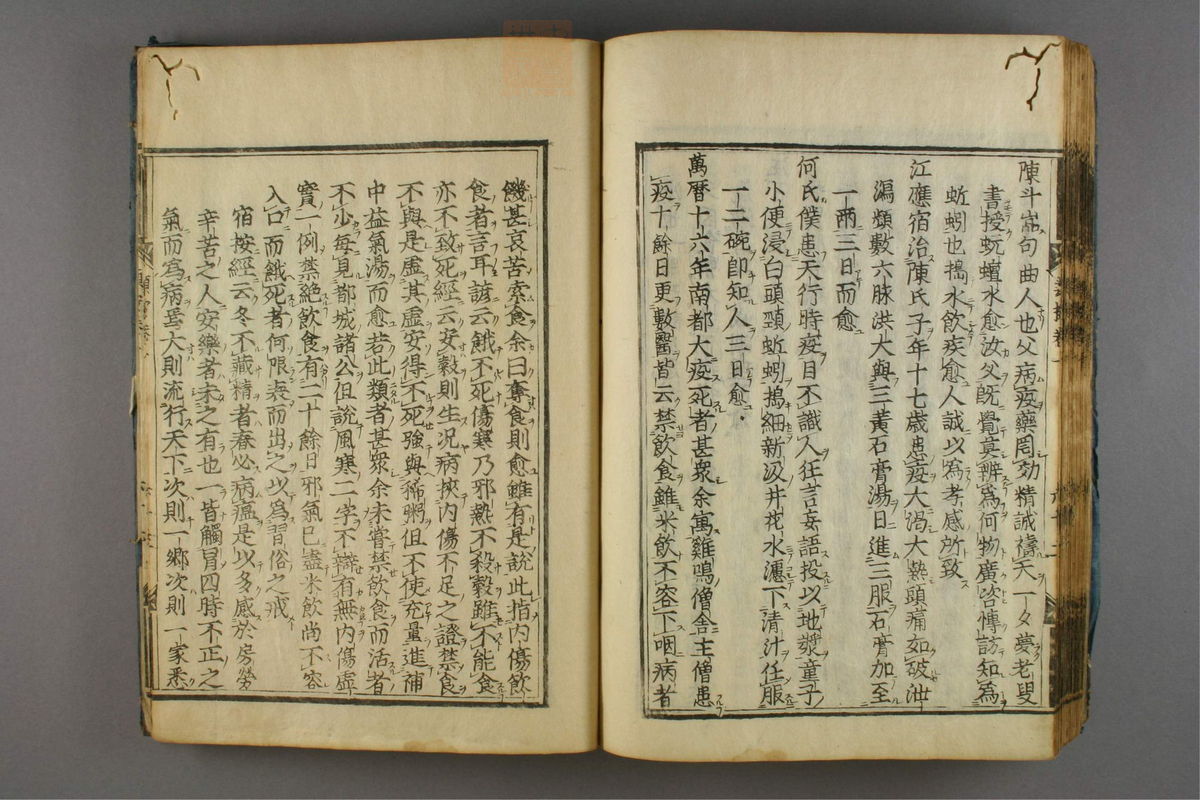 陳斗嵩句曲人也父病疫藥罔効精誠禱天一夕夢老叟
書授蚖蟺水愈汝父既覺莫辨爲何物廣咨博訪知爲
蚯蚓也搗水飲疾愈人誠以爲孝感所致
江應宿治陳氏子年十七歲患疫大渴大熱頭痛如破泄
瀉頻數六脉洪大與三黃石膏湯日進三服石膏加至
一兩三日而愈
何氏僕患天行時疫目不識人狂言妄語投以地漿童子
小便浸白頭頸蚯蚓搗細新汲井花水濾下清汁任服
一二碗即知人三日愈
萬曆十六年南都大疫死者甚衆余寓雞鳴僧舍主僧患
疫十餘日更數醫皆云禁飲食雖米飲不容下咽病者
饑甚哀苦索食余曰奪食則愈雖有是說此指内傷飲
食者言耳諺云餓不死傷寒乃邪熱不殺穀雖不能食
亦不致死經云安穀則生况病挾内傷不足之證禁食
不與是虛其虛安得不死強與稀粥但不使充量進補
中益氣湯而愈若此類者甚衆余未嘗禁飲食而活者
不少每見都城諸公但說風寒二字不辯有無内傷虛
實一例禁絕飲食有二十餘日邪氣已盡米飲尚不容
入口而餓死者何限表而出之以爲習俗之戒
宿按經云冬不藏精者春必病瘟是以多感於房勞
辛苦之人安樂者未之有也一皆觸冒四時不正之
氣而爲病焉大則流行天下次則一鄉次則一家悉